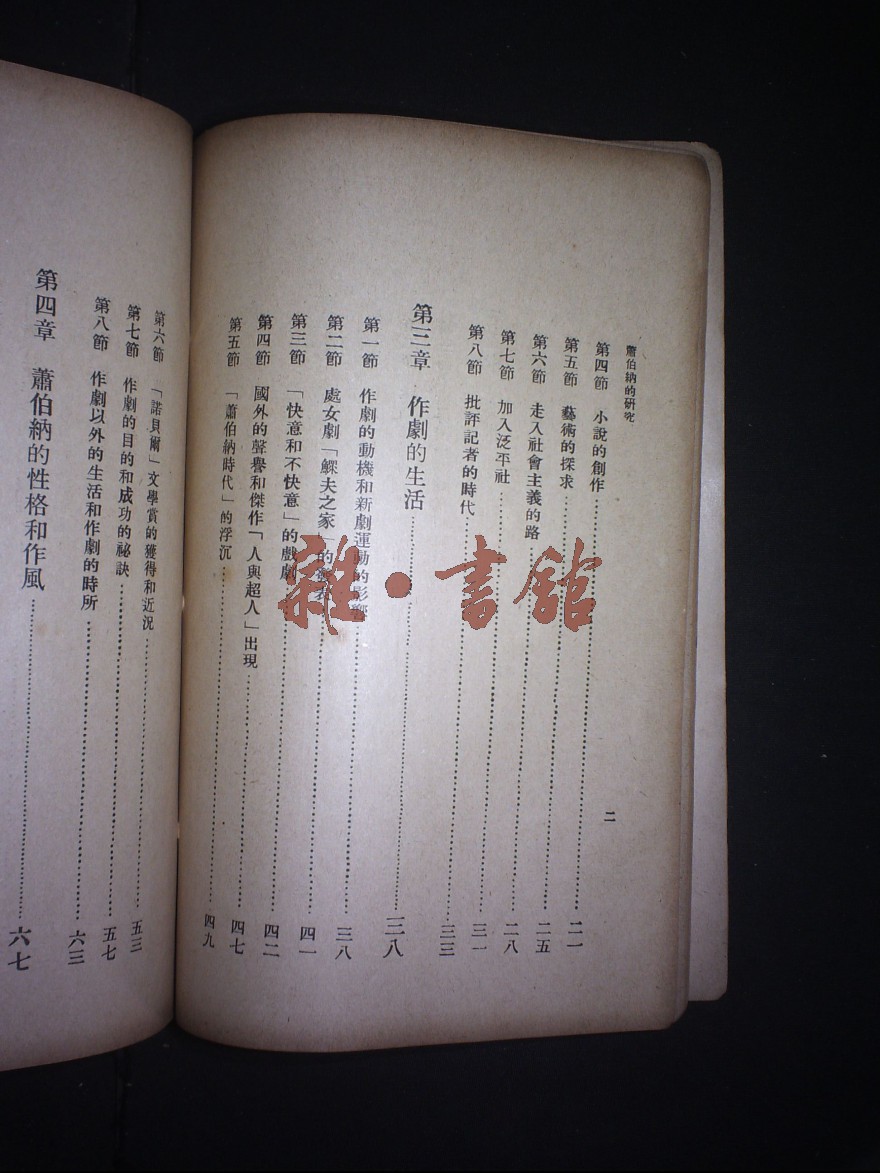 蕭伯納的研究
第四節　小說的創作…………二一
第五節　藝術的探求…………二五
第六節　走入社會主義的路…………二八
第七節　加入泛平社…………三一
第八節　批評記者的時代…………三三
第三章　作劇的生活…………三八
第一節　作劇的動機和新劇運動的影響…………三八
第二節　處女劇「鰥夫之家」的…………四一
第三節　「快意和不快意」的戲劇…………四二
第四節　國外的聲譽和傑作「人與超人」出現…………四七
第五節　「蕭伯納時代」的浮沉…………四九
二
第六節　「諾貝爾」文學賞的獲得和近況…………五三
第七節　作劇的目的和成功的祕訣…………五七
第八節　作劇以外的生活和作劇的時所…………六三
第四章　蕭伯納的性格和作風…………六七
雜·書館